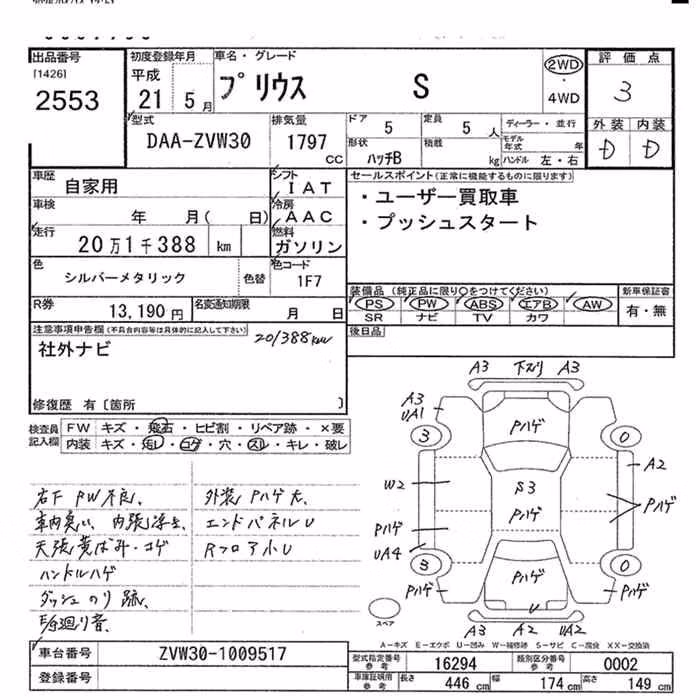 出品番号
[1426]
2553
初度登録年月
平成
21年 5月
車名・グレード
プリウス S
2WD
・
4WD
評価点
3
外装 内装
D D
型式
DAA-ZVW30
排気量
1797
CC
ドア 5
定員 5 人
形状 ハッチB
積載 kg
ディーラー・並行
モデル年式 年
ハンドル 左・右
車歴
自家用
シフト
IAT
車検
年 月( 日)
冷房
AAC
走行
20万1千388 km
燃料
ガソリン
色
シルバーメタリック
色替
色コード
1F7
R券
13,190円
名変通知期限
月 日
セールスポイント(正常に機能するものに限ります)
・ユーザー買取車
・プッシュスタート
装備品(純正品に限り○をつけてください)
PS PW ABS エアB AW
SR ナビ TV カワ
新車保証書
有・無
後日品
注意事項申告欄(不具合内容等は具体的に記入して下さい)
201388km
社外ナビ
修復歴 有〔箇所 〕
検査員
記入欄
FW キズ・飛石・ヒビ割・リペア跡・×要
内装 キズ・汚レ・コゲ・穴・スレ・キレ・破レ
右下 PW不良、
車内臭い、内張浮き、
天張黄ばみ・コゲ
ハンドルハゲ
ダッシュのり跡、
外装Pハゲ大、
エンドパネルU
Rフロア小U
A3 下ズリ A3
A3
UA1
Pハゲ
3 0
A2
W2
S3
Pハゲ
Pハゲ
Pハゲ
UA4
3 0
Pハゲ
Pハゲ
Pハゲ
U
スペア
A3 A2 UA2
A−キズ E−エクボ U−凹み W−補修跡 S−サビ C−腐食 XX−交換済
車台番号
ZVW30-1009517
登録番号
型式指定番号
参考
16294
類別区分番号
参考
0002
車庫証明用
参考
長さ 446 cm
幅 174 cm
高さ 149 cm